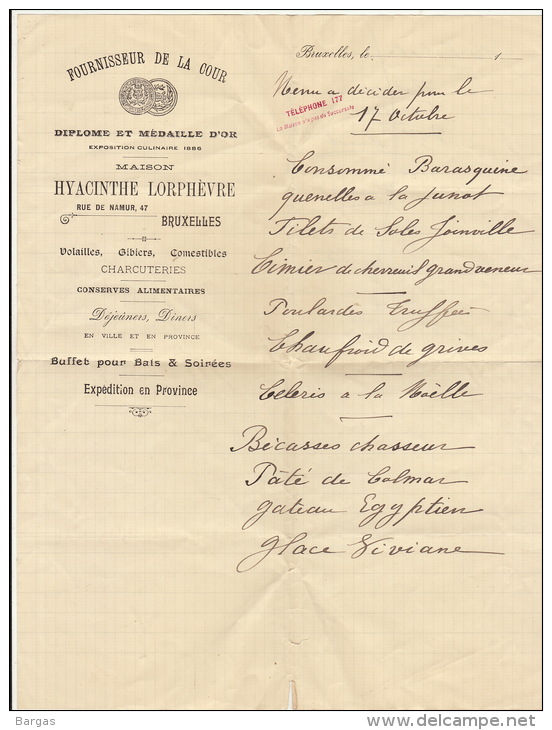 FOURNISSEUR DE LA COUR
DIPLOME ET MÉDAILLE D'OR
EXPOSITION CULINAIRE 1886
MAISON
HYACINTHE LORPHÈVRE
RUE DE NAMUR, 47
BRUXELLES
Volailles, Gibiers, Comestibles
CHARCUTERIES
CONSERVES ALIMENTAIRES
Déjeûners, Diners
EN VILLE ET EN PROVINCE
Buffet pour Bals & Soirées
Expédition en Province
Bruxelles, le 1
Menu a décider pour le
17 Octobre
TÉLÉPHONE 177
La Maison n'a pas de Succursale
Consommé Barasquine
quenelles a la Junot
Filets de Soles Joinville
Cimier de chevreuil grand veneur
Poulardes truffées
Chaufroid de grives
Céleris a la Moëlle
Bécasses chasseur
Pâté de Colmar
gateau Egyptien
glace Viviane
Bargas
delcampe.net